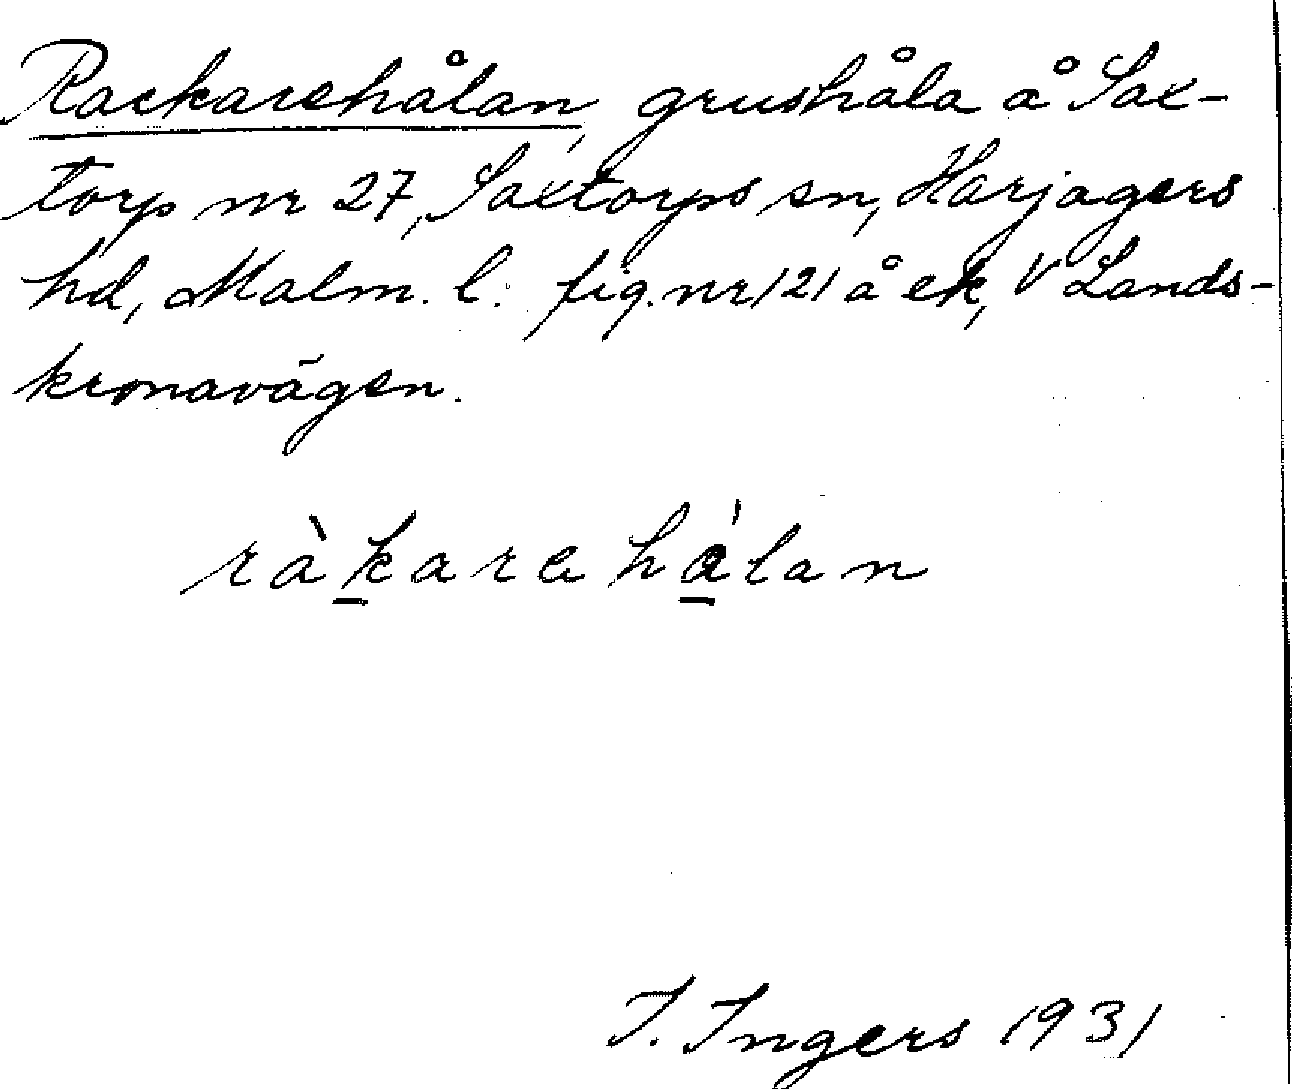 Rackarehålan, grushåla å Sax-
torp nr 27, Saxtorps sn, Harjagers
hd, Malm. l. fig. nr 121 å ek, V Lands-
kronavägen.
ràkarahálan
I. Ingers 1931